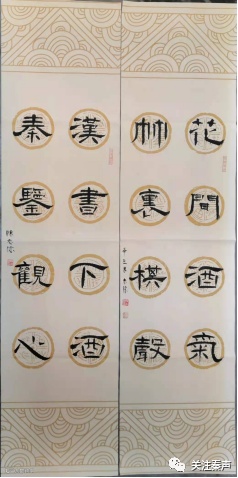 花間酒氣
竹裏棋聲
漢書下酒
秦鑒觀心
关注秦声